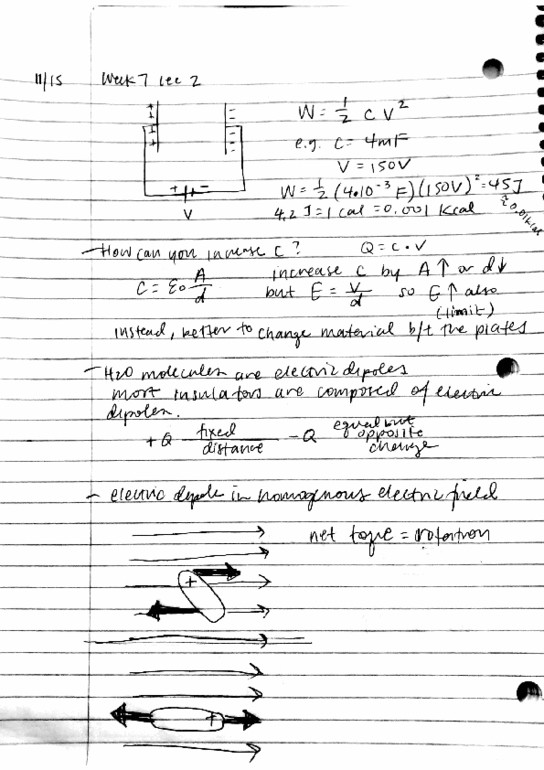 11/15 Week 7 Lec 2
W = 1/2 C V²
e.g. C = 4mF
V = 150V
+ -
V
W = 1/2 (4·10⁻³ F)(150V)² = 45J
≈ 0.01 kcal
4.2 J = 1 cal = 0.001 kcal
- How can you increase C? Q = C · V
C = ε₀ A/d increase C by A↑ or d↓
but E = V/d so E↑ also
(limit)
instead, better to change material b/t the plates
- H2O molecules are electric dipoles
most insulators are composed of electric
dipoles.
+Q fixed distance -Q equal but opposite charge
- electric dipole in homogenous electric field
net torque = rotation
+
+